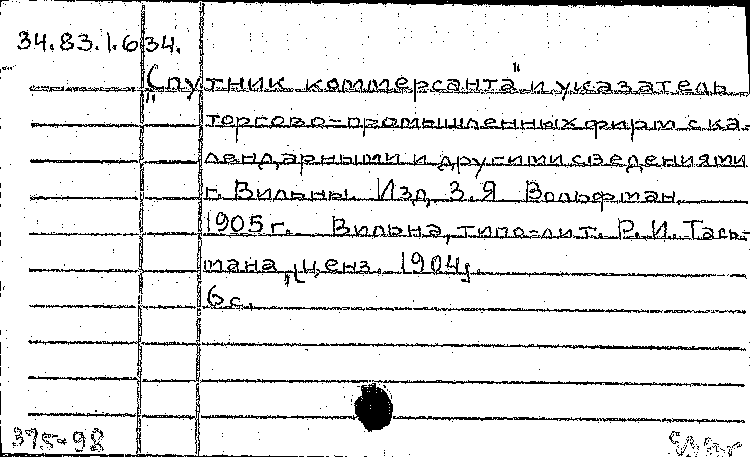 34.83.1.634.
„Спутник коммерсанта" и указатель
торгово-промышленных фирм с ка-
лендарными и другими сведениями
г. Вильны. Изд. З.Я Вольфман.
1905 г. Вильна, типо-лит. Р. И.
ценз. 1904г.
6 с.
375-98